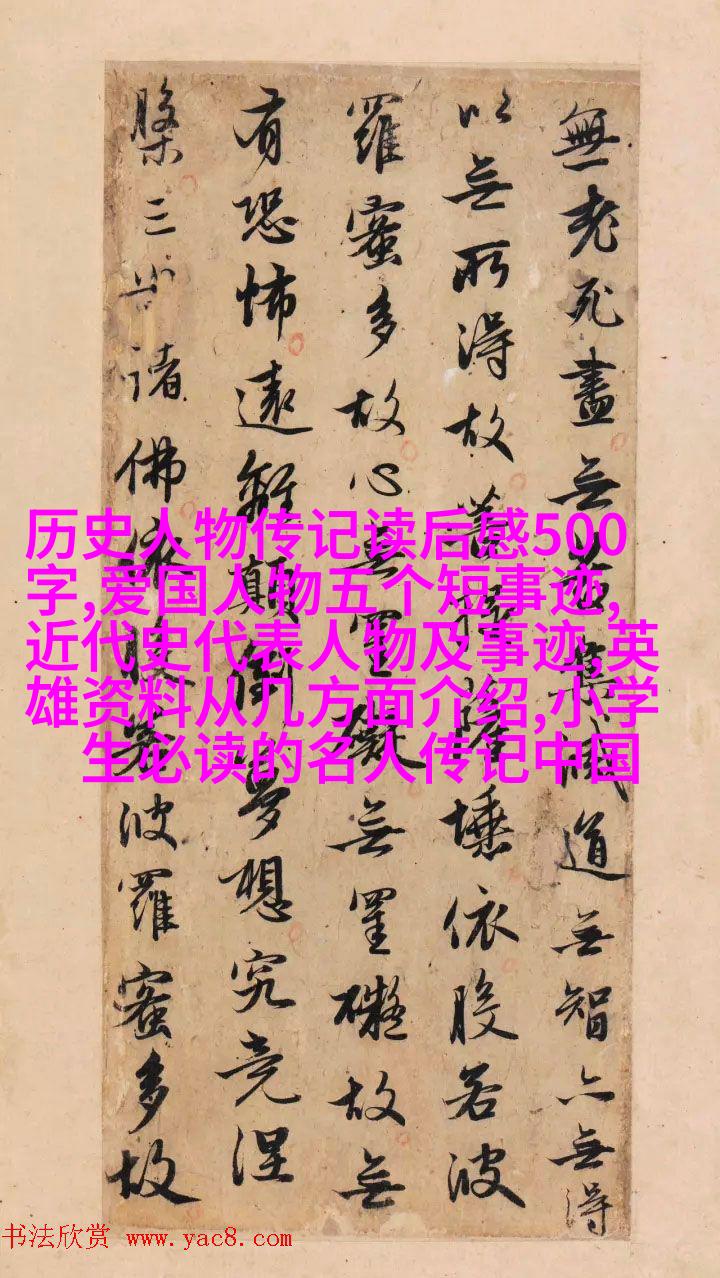 無老死盡無苦集滅道無智亦無得
以無所得故菩提薩埵依般若波
羅蜜多故心無罣礙無罣礙故無
有恐怖遠離顛倒夢想究竟涅
槃三世諸佛依般若波羅蜜多故
历史人物传记读后感500
字,爱国人物五个短事迹,
近代史代表人物及事迹,英
雄资料从几方面介绍,小学
生必读的名人传记中国
书法欣赏 www.yac8.com